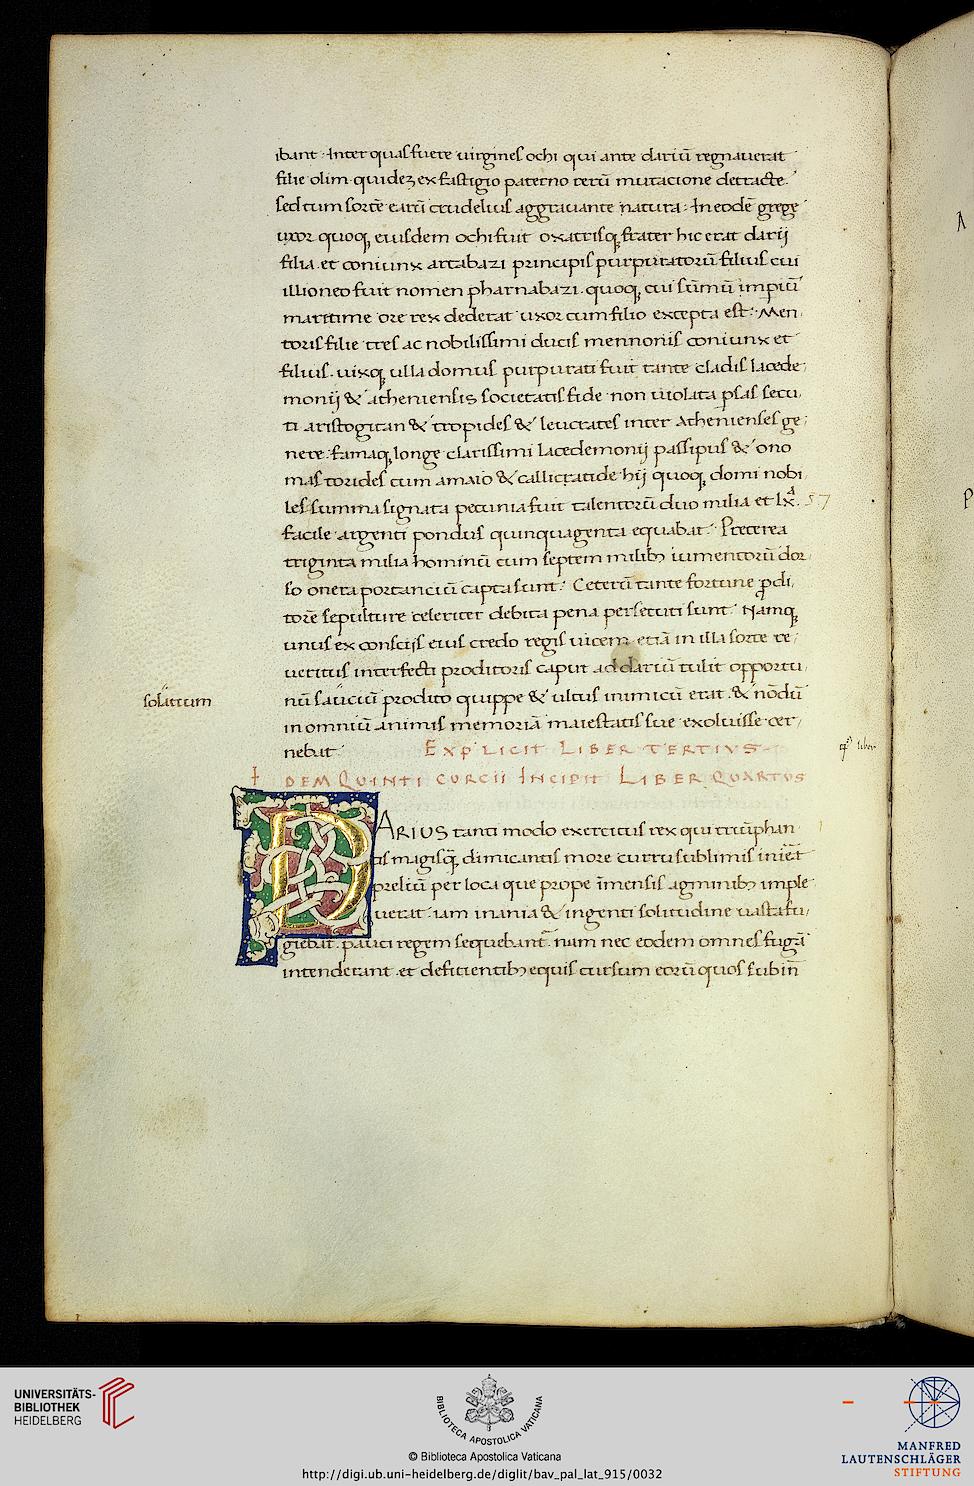 ibant. Inter quas fuere uirgines ochi qui ante dariū regnauerat
filie olim quidez ex fastigio paterno rerū mutacione detracte.
sed tum sorte earū crudelius aggrauante natura. In eodē grege
uxor quoq, eiusdem ochi fuit oxatrisq, frater hic erat darii
filia. et coniunx artabazi principis purpuratorū filius cui
illioneo fuit nomen pharnabazi. quoq, cui sūmū imperiū
maritime ore rex dederat uxor cum filio excepta est. Men
toris filie tres ac nobilissimi ducis mennonis coniunx et
filius. uixq, ulla domus purpurati fuit tante cladis lacede
monij & atheniensis societatis fide non uiolata psas secu
ti aristogitan & tropides & leucrates inter Athenienses ge
nere. famaq, longe clarissimi lacedemonij passipus & ono
mas torides cum amaio & callicratide hij quoq, domi nobi
les summa signata pecunia fuit talentorū duo milia et lx. 57
facile argenti pondus quinquagenta equabat. Preterea
triginta milia hominū cum septem milib; iumentorū dor
so onera portanciū capta sunt. Ceterū tante fortune pdi
torē sepulture celeriter debita pena persecuti sunt. Namq,
unus ex conscijs eius credo regis uicem etiā in illa sorte re
ueritus interfecti proditoris caput ad dariū tulit opportu
solatium
nū saucuū prodito quippe & ultus inimicū erat. & nōdū
in omniū animis memoriā maiestatis sue exoluisse cer
nebat. EXPLICIT LIBER TERTIUS
IDEM QUINTI CURCII INCIPIT LIBER QUARTUS
liber
DARIUS tanti modo exercitus rex qui triūphan
tis magisq̄ dimicantis more curru sublimis inierat
preliū per loca que prope īmensis agminib; imple
uerat. iam inania & ingenti solitudine uasta fu
giebat. pauci regem sequebant. nam nec eodem omnes fugā
intenderant. et deficientib; equis cursum eorū quos subin
UNIVERSITÄTS-
BIBLIOTHEK
HEIDELBERG
BIBLIOTECA APOSTOLICA VATICANA
© Biblioteca Apostolica Vaticana
http://digi.ub.uni-heidelberg.de/diglit/bav_pal_lat_915/0032
MANFRED
LAUTENSCHLÄGER
STIFTUNG